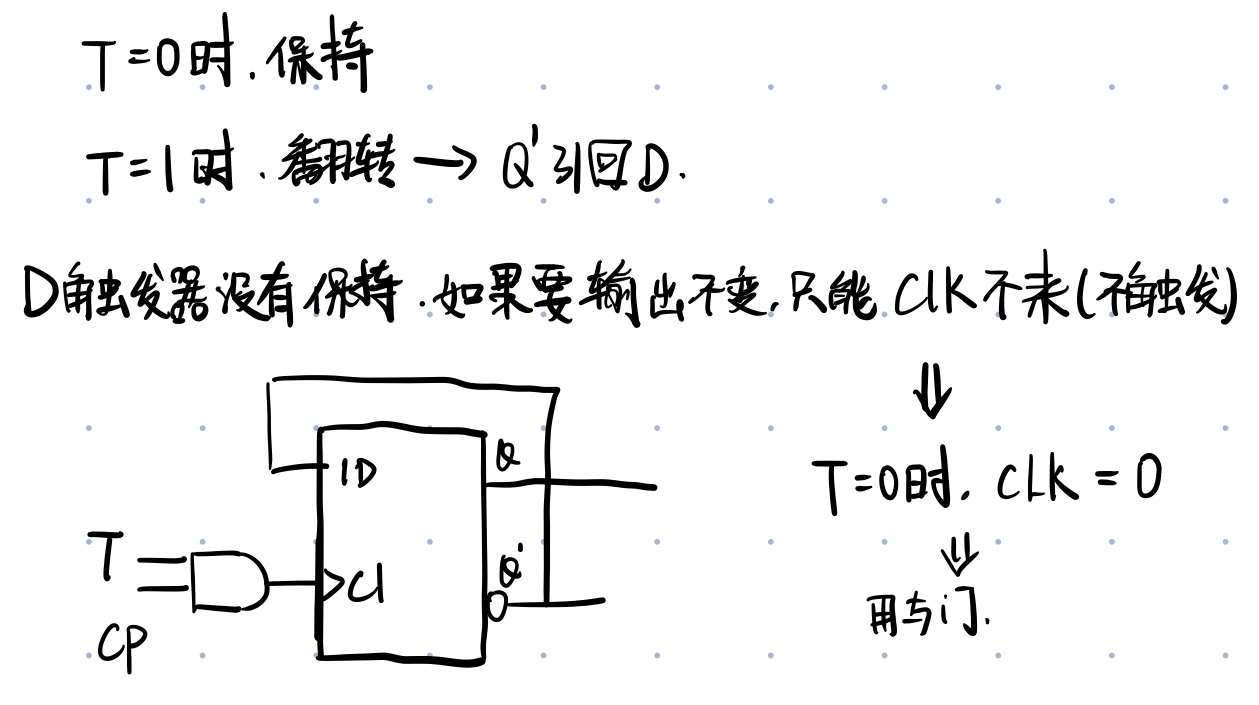 T=0时.保持
T=1时.翻转→Q'引回D.
D触发器没有保持.如果要输出不变,只能CLK不来(不触发)
⇓
T=0时.CLK=0
⇓
用与门.
1D
Q
T
C1
Q'
CP